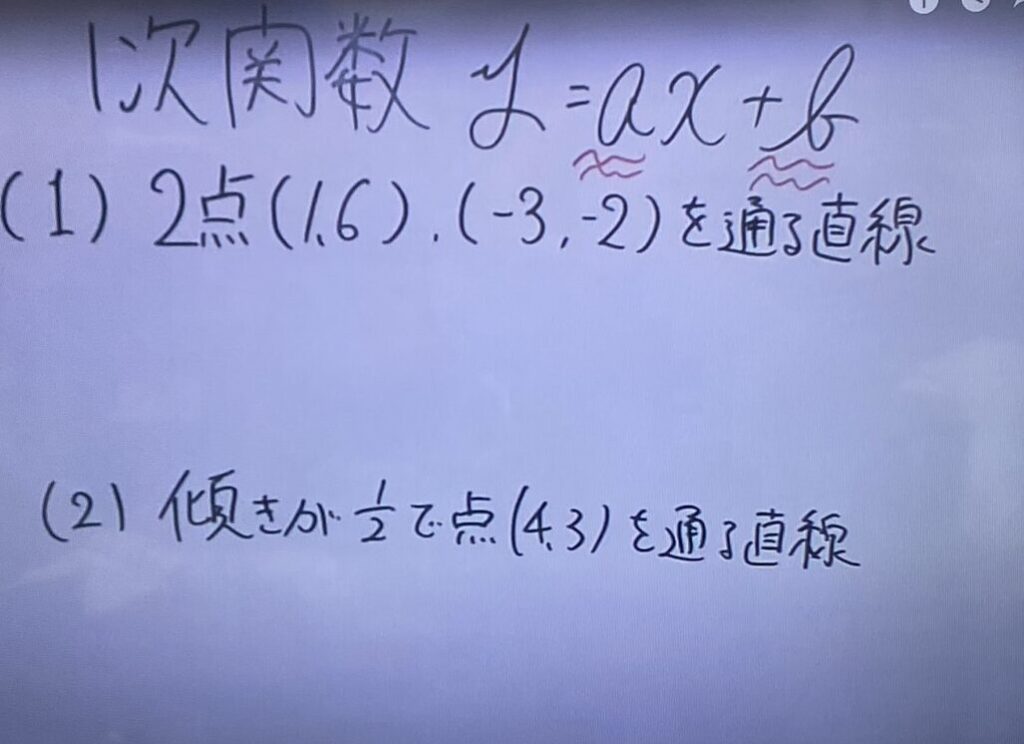 1次関数 y=ax+b
(1) 2点(1,6),(-3,-2)を通る直線
(2) 傾きが1/2で点(4,3)を通る直線